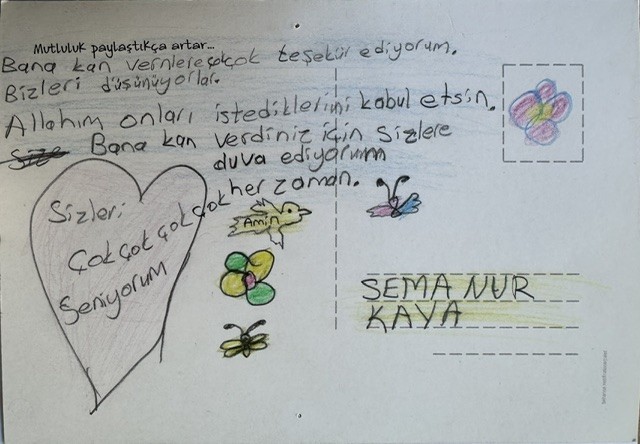 Mutluluk paylaştıkça artar...
Bana kan vernlere çokçok teşekür ediyorum.
Bizleri düşünüyorlar.
Allahım onları istediklerini kabul etsin.
Size Bana kan verdiniz için sizlere
duva ediyorum
her zaman.
Sizleri
çok çok çok çok çok
Seniyorum
Amin
SEMA NUR
KAYA